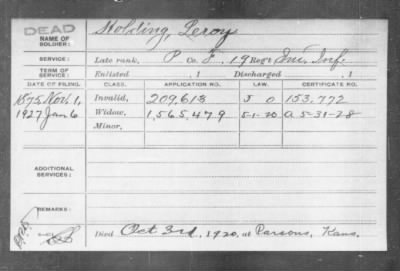 DEAD
NAME OF SOLDIER: Holding, Leroy
SERVICE: Late rank, P Co. F, 19 Reg't Ind. Inf.
TERM OF SERVICE: Enlisted , 1 Discharged , 1
DATE OF FILING. CLASS. APPLICATION NO. LAW. CERTIFICATE NO.
1875 Nov. 1, Invalid, 209,618 J O 153,772
1927 Jan 6 Widow, 1,565,479 5-1-20 A 5-31-28
Minor,
ADDITIONAL SERVICES:
REMARKS:
Died Oct 3rd, 1920, at Parsons, Kans.